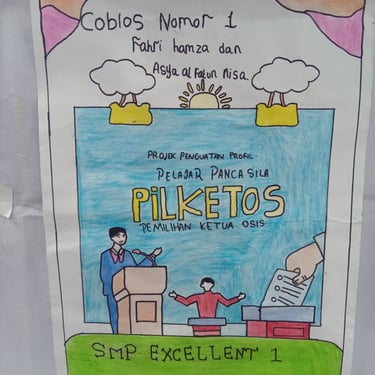 Coblos Nomor 1
Fahri hamza dan
Asya al Fatun Nisa.
PROJEK PENGUATAN PROFIL
PELAJAR PANCASILA
PiLKETOS
PEMILIHAN KETUA OSIS
SMP EXCELLENT 1